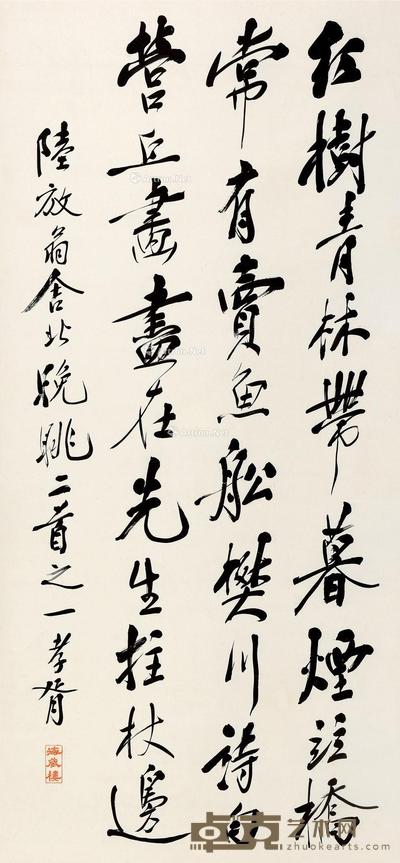 紅樹青林帶暮煙並橋
常有賣魚船樊川詩句
營丘畫盡在先生拄杖邊
陸放翁舍北晚眺二首之一 孝胥
海藏樓
卓克艺术网
www.zhuokearts.com